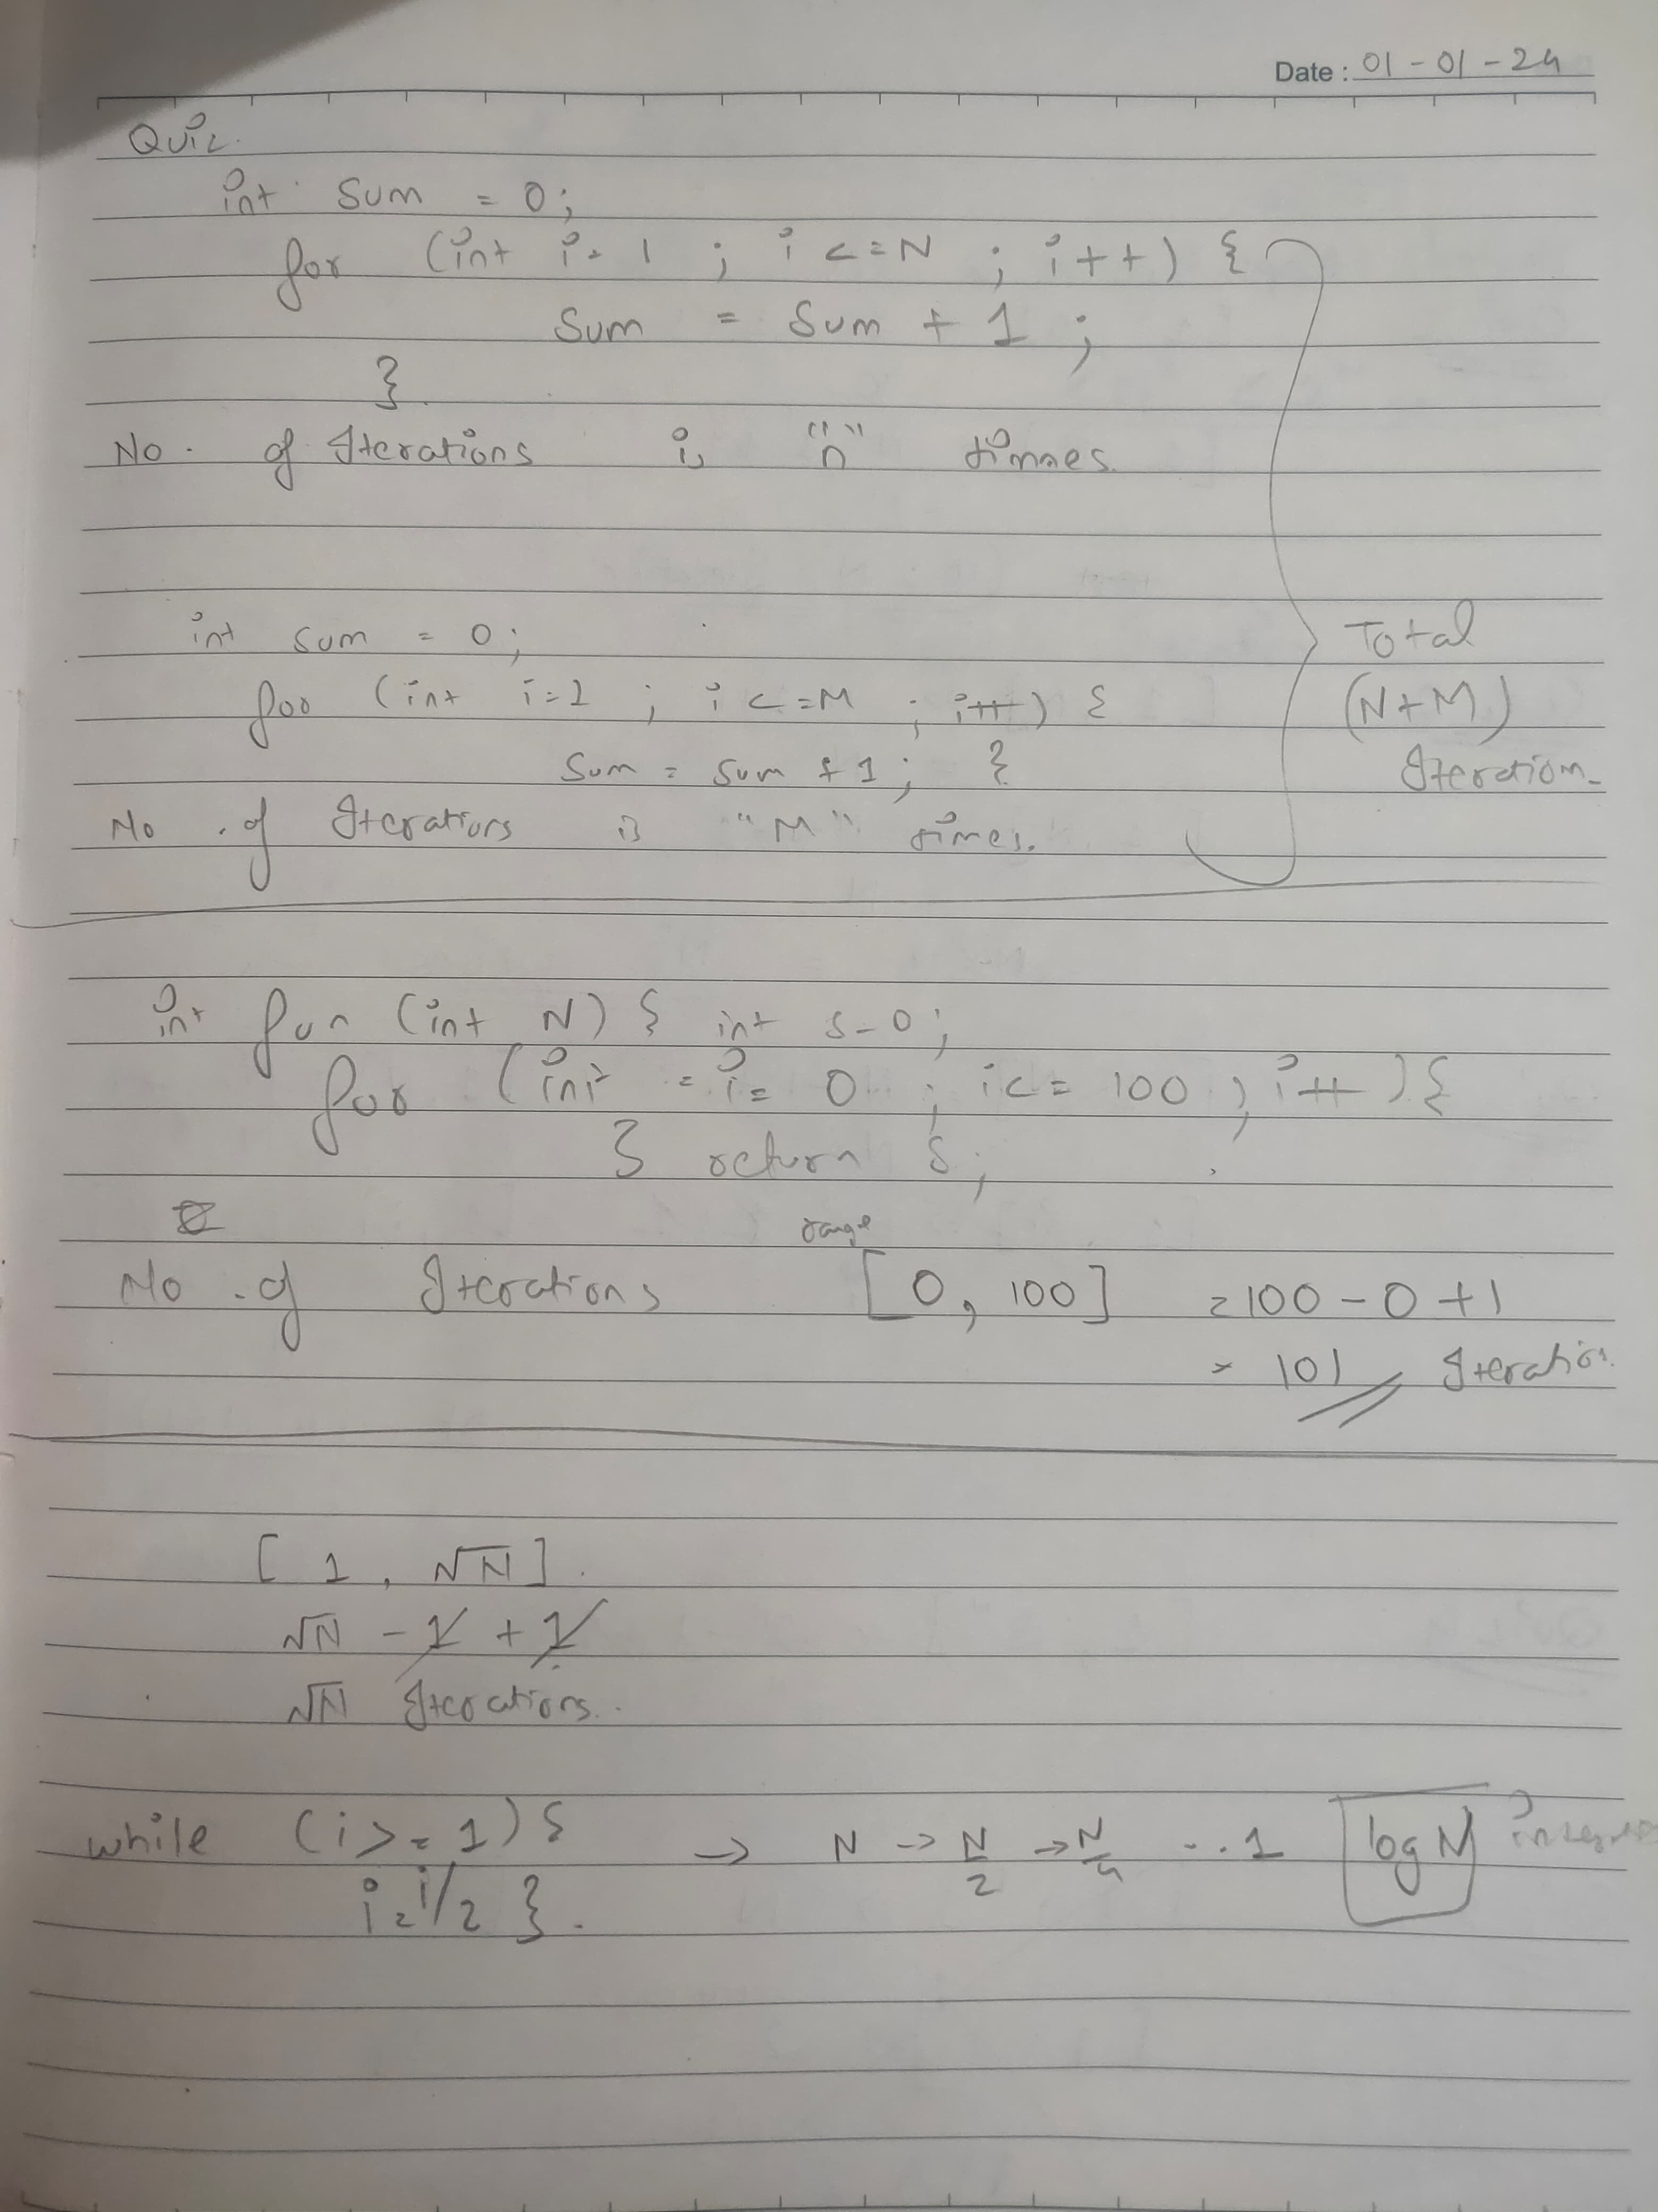 Date : 01-01-24
Quiz.
int sum = 0;
for (int i = 1 ; i <= N ; i++) {
Sum = Sum + 1 ;
}
No. of Iterations is "n" times.
int sum = 0;
for (int i=1 ; i <=M ; i++) {
Sum = sum + 1; }
No. of Iterations is "M" times.
Total
(N+M)
Iteration
int fun (int N) { int s=0;
for (int = i= 0 ; i<= 100 ; i++) {
} return s;
range
No. of Iterations [0, 100] = 100 - 0 + 1
= 101 Iteration
[ 1 , √N ].
√N - 1 + 1
√N Iterations.
while (i >= 1) { → N → N/2 → N/4 ... 1 log N
i = i/2 }.